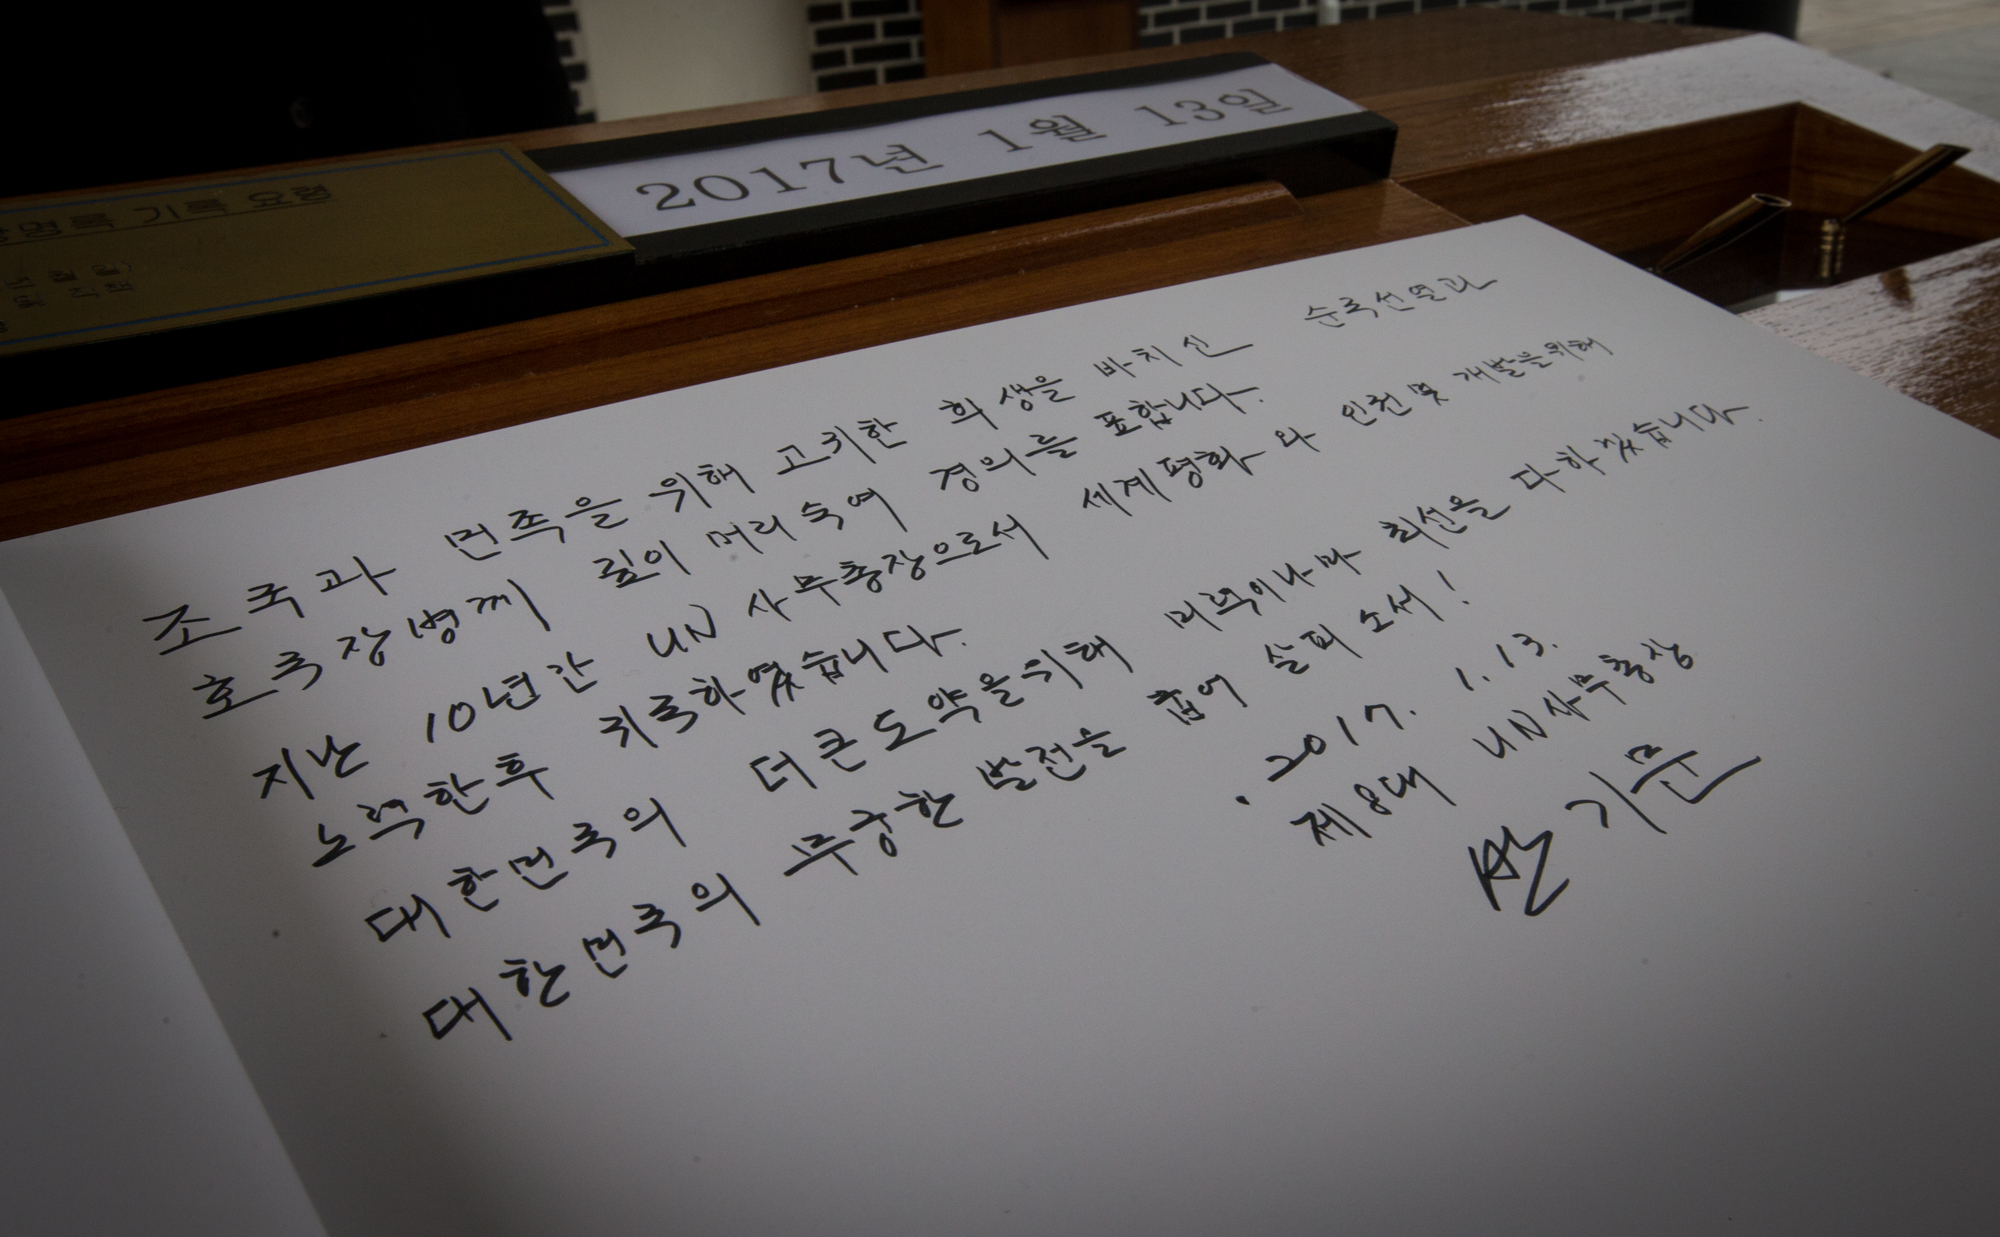 2017년 1월 13일
방명록 기록 요령
조국과 민족을 위해 고귀한 희생을 바치신 순국선열과
호국장병께 깊이 머리숙여 경의를 표합니다.
지난 10년간 UN 사무총장으로서 세계평화와 인권 및 개발을 위해
노력한 후 귀국하였습니다.
대한민국의 더 큰 도약을 위해 미력이나마 최선을 다하겠습니다.
대한민국의 무궁한 발전을 굽어 살피소서!
2017. 1. 13.
제8대 UN사무총장
반기문